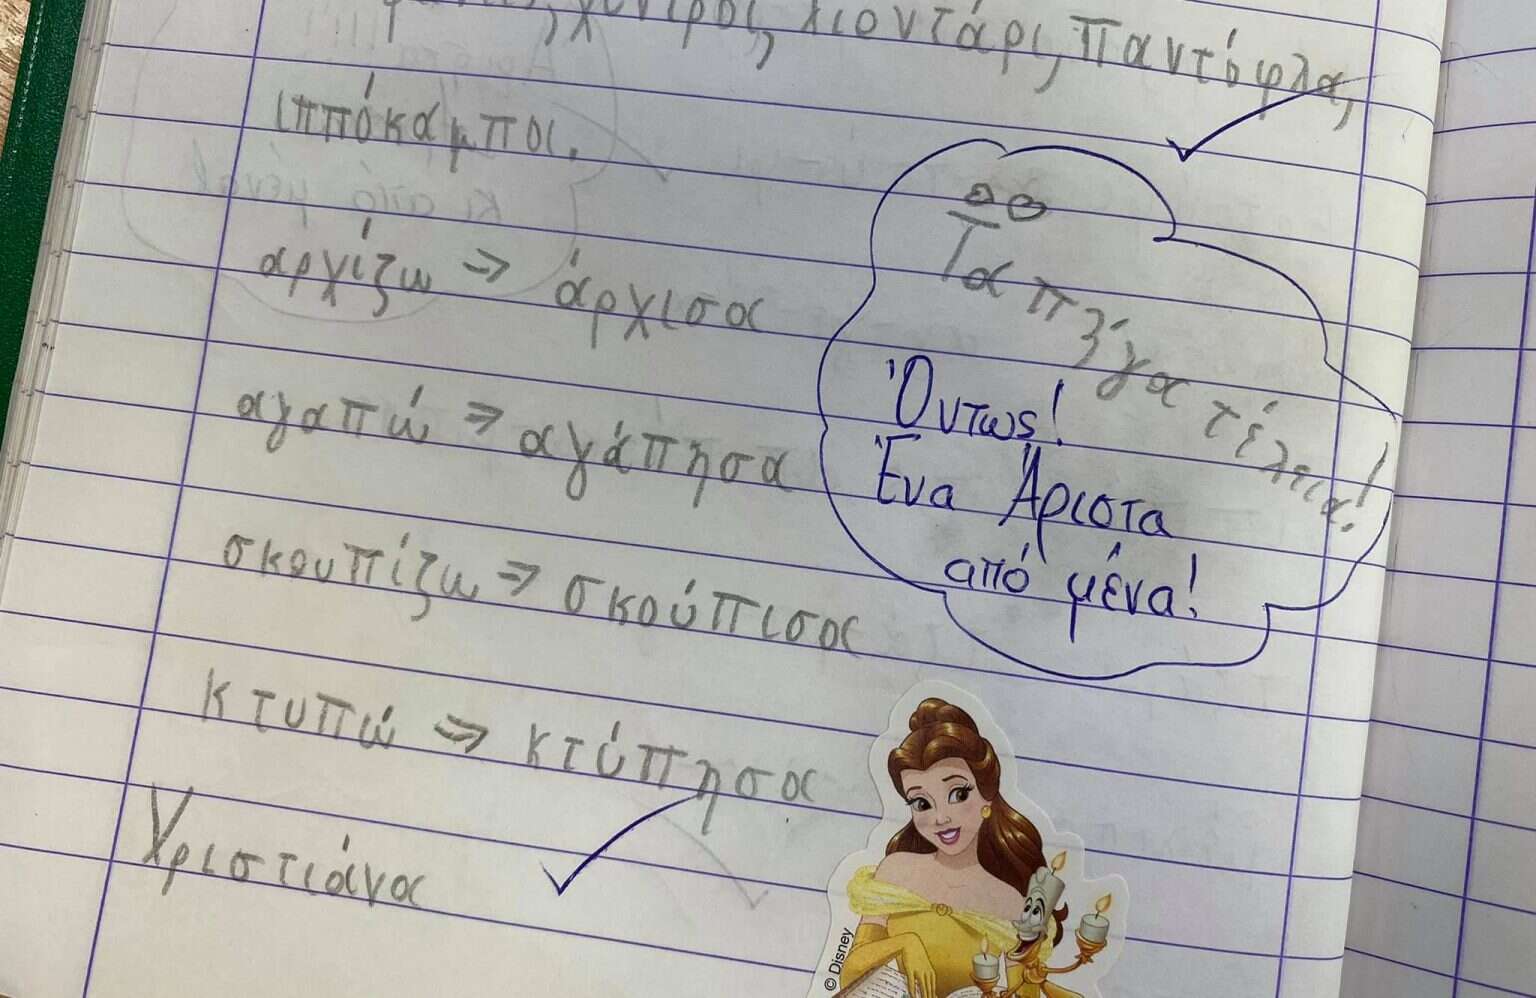 χοντρός, λιοντάρι, παντόφλα,
ιππόκαμπος.
αρχίζω ⇒ άρχισα
αγαπώ ⇒ αγάπησα
σκουπίζω ⇒ σκούπισα
κτυπώ ⇒ κτύπησα
Χριστιάνα
Τα πήγα τέλεια!
Όντως!
Ένα Άριστα
από μένα!
© Disney